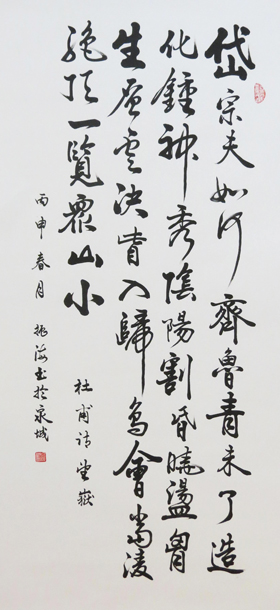 岱宗夫如何齊魯青未了造
化鍾神秀陰陽割昏曉盪胷
生層雲決眥入歸鳥會當凌
絶頂一覽眾山小
杜甫詩望嶽
丙申春月 振海書於泉城